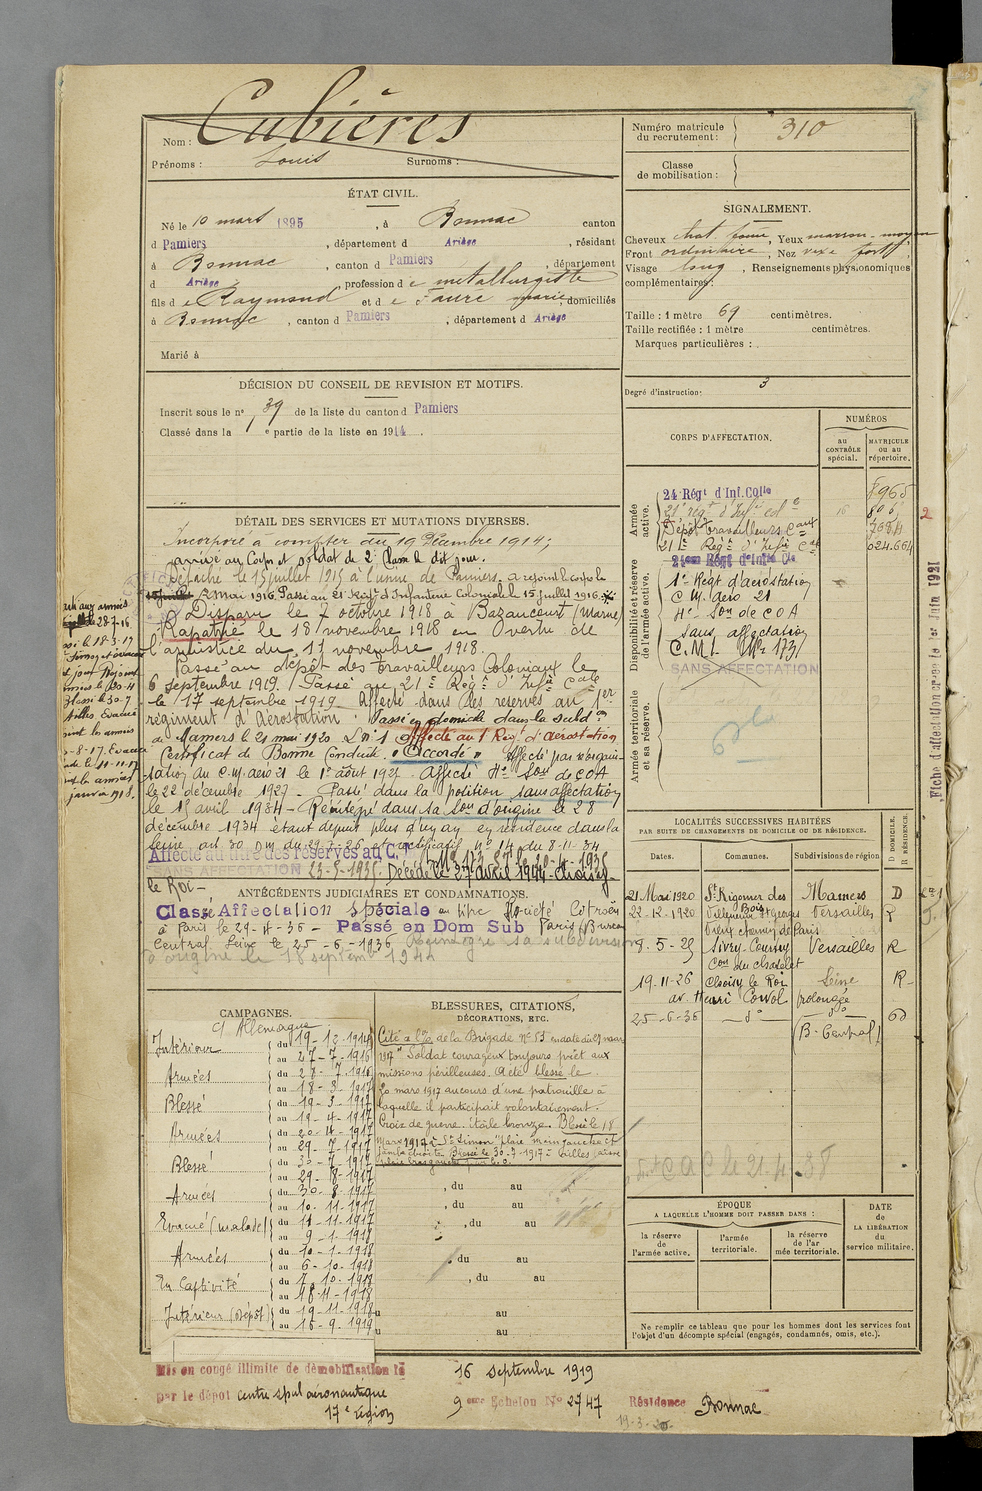 Nom : Cubières
Prénoms : Louis Surnoms :
Numéro matricule du recrutement : 310
Classe de mobilisation :
ÉTAT CIVIL.
Né le 10 mars 1895, à Bonnac canton
d Pamiers, département d Ariège, résidant
à Bonnac, canton d Pamiers, département
d Ariège, profession de metallurgiste
fils de Raymond et de Faure marie, domiciliés
à Bonnac, canton d Pamiers, département d Ariège
Marié à
SIGNALEMENT.
Cheveux chat. foncé, Yeux marron-moyen
Front ordinaire, Nez vexe fort,
Visage long, Renseignements physionomiques
complémentaires :
Taille : 1 mètre 69 centimètres.
Taille rectifiée : 1 mètre centimètres.
Marques particulières :
Degré d'instruction : 3
DÉCISION DU CONSEIL DE REVISION ET MOTIFS.
Inscrit sous le n° 39 de la liste du canton d Pamiers
Classé dans la 1e partie de la liste en 1914.
DÉTAIL DES SERVICES ET MUTATIONS DIVERSES.
Incorporé à compter du 19 Décembre 1914;
arrivé au Corps et soldat de 2e Classe le dit jour.
Détaché le 15 juillet 1915 à l'usine de Pamiers. A rejoint le corps le
2 mai 1916. Passé au 21e Régt d'Infanterie Coloniale le 15 Juillet 1916.
Disparu le 7 octobre 1918 à Bazancourt (Marne)
Rapatrié le 18 novembre 1918 en vertu de
l'armistice du 11 novembre 1918.
Passé au dépôt des travailleurs Coloniaux le
6 septembre 1919. Passé au 21e Régt d'Infie Cale
le 17 septembre 1919. Affecté dans les réserves au 1er
régiment d'Aérostation. Passé en domicile dans la subd.on
de Mamers le 21 mai 1920. Affecté au 1 Régt d'aérostation
Certificat de Bonne Conduite "Accordé" Affecté par réorgani-
sation au C.M. aéro 21 le 1er août 1927. Affecté 4e Son de COA
le 22 décembre 1927 - Passé dans la position sans affectation
le 15 avril 1934 - Réintégré dans sa Son d'origine le 28
décembre 1934 étant depuis plus d'un an en résidence dans la
Seine art 30 du 29-7-26 et rectificatif n° 14 du 8-11-34
Affecté au titre des réserves au C.
SANS AFFECTATION 23-5-1935. Décédé le 27 avril 1944 Choisy
le Roi -
ANTÉCÉDENTS JUDICIAIRES ET CONDAMNATIONS.
Classé Affectation Spéciale au titre Société Citroën
à Paris le 29-4-36 - Passé en Dom Sub Paris (Bureau
Central Seine le 25-6-1936 Réintégré sa subdivision
d'origine le 18 septembre 1944
CORPS D'AFFECTATION.
NUMÉROS
au CONTRÔLE spécial.
MATRICULE ou au répertoire.
Armée active.
24 Régt d'Inf. Colle 8965
21e régt d'Infie cole 16
Dépôt travailleurs Caux 7084
21e Régt d'Infie Cale 024.664
Disponibilité et réserve de l'armée active.
24eme Régt d'Infie Cle
1er Régt d'aérostation
C M. aéro 21
4e Son de C O A
Sans affectation
C.M.I. No 173
SANS AFFECTATION
Armée territoriale et sa réserve.
2
Fiche d'affectation créée le 1er Juin 1921
LOCALITÉS SUCCESSIVES HABITÉES
PAR SUITE DE CHANGEMENTS DE DOMICILE OU DE RÉSIDENCE.
Dates. Communes. Subdivisions de région D DOMICILE. R RÉSIDENCE.
21 Mai 1920 St Rigomer des Bois Mamers D
22-12-1920 Villeneuve St Georges Versailles R
vieux chemin de Paris
8-5-25 Sivry-Courtry Versailles R
Con du Chatelet
19-11-26 Choisy le Roi Seine R
av. Henri Corvol prolongée
25-6-36 -do- -do-
(B. Central)
CAMPAGNES.
C/ Allemagne
Intérieur du 19-12-1914
au 27-7-1916
Armées du 28-7-1916
au 18-3-1917
Blessé du 19-3-1917
au 19-4-1917
Armées du 20-4-1917
au 29-7-1917
Blessé du 30-7-1917
au 29-8-1917
Armées du 30-8-1917
au 10-11-1917
Evacué (malade) du 11-11-1917
au 9-1-1918
Armées du 10-1-1918
au 6-10-1918
En Captivité du 7-10-1918
au 18-11-1918
Intérieur (Dépôt) du 19-11-1918
au 16-9-1919
BLESSURES, CITATIONS,
DÉCORATIONS, ETC.
Cité à l'O/ de la Brigade n° 53 en date du 29 mars
1917 "Soldat courageux toujours prêt aux
missions périlleuses. A été blessé le
20 mars 1917 au cours d'une patrouille à
laquelle il participait volontairement.
Croix de guerre. étoile bronze. Blessé le 18
Mars 1917 à St Simon "plaie main gauche et
jambe droite. Blessé le 30-7-1917 à Vailles Aisne
, du au
, du au
, du au
, du au
, du au
au
au
ÉPOQUE
A LAQUELLE L'HOMME DOIT PASSER DANS :
la réserve de l'armée active.
l'armée territoriale.
la réserve de l'armée territoriale.
DATE de LA LIBÉRATION du service militaire.
Ne remplir ce tableau que pour les hommes dont les services font
l'objet d'un décompte spécial (engagés, condamnés, omis, etc.).
Mis en congé illimité de démobilisation le 16 septembre 1919
par le dépôt centre spal aéronautique 9eme Echelon No 2747 Résidence Bonnac
17e région
19-3-20